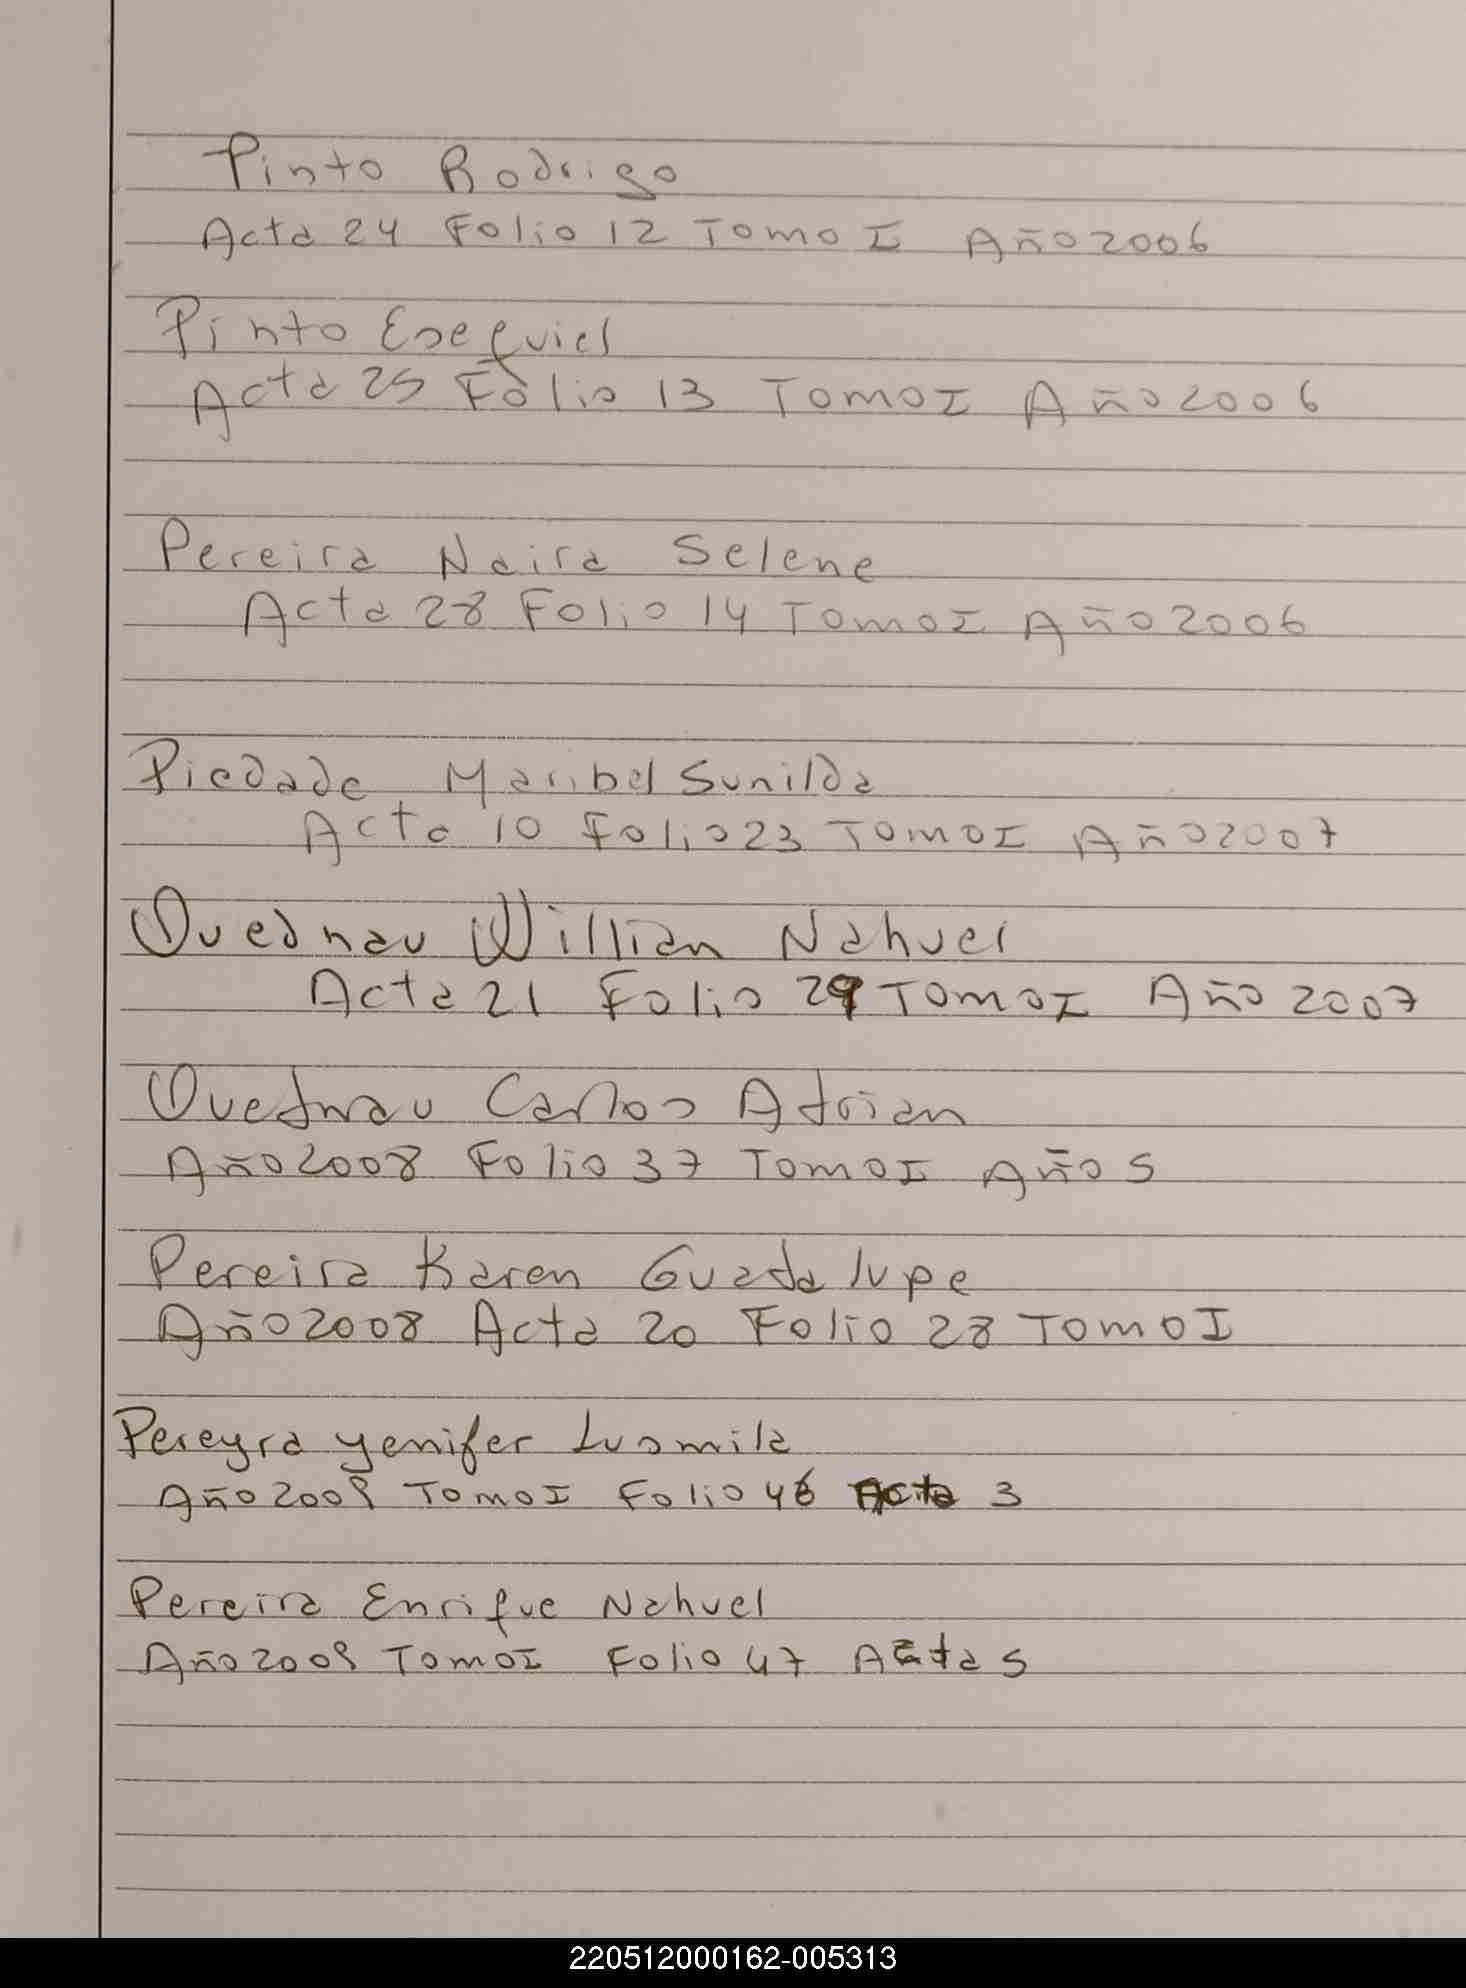 Pinto Rodrigo
Acta 24 Folio 12 Tomo I Año 2006
Pinto Esequiel
Acta 25 Folio 13 Tomo I Año 2006
Pereira Naira Selene
Acta 28 Folio 14 Tomo I Año 2006
Piedade Maribel Sunilda
Acta 10 Folio 23 Tomo I Año 2007
Quednau Willian Nahuel
Acta 21 Folio 29 Tomo I Año 2007
Quednau Carlos Adrian
Año 2008 Folio 37 Tomo I Año 5
Pereira Karen Guadalupe
Año 2008 Acta 20 Folio 28 Tomo I
Pereyra Yenifer Lusmila
Año 2009 Tomo I Folio 46 Acta 3
Pereira Enrique Nahuel
Año 2009 Tomo I Folio 47 Acta 5
220512000162-005313